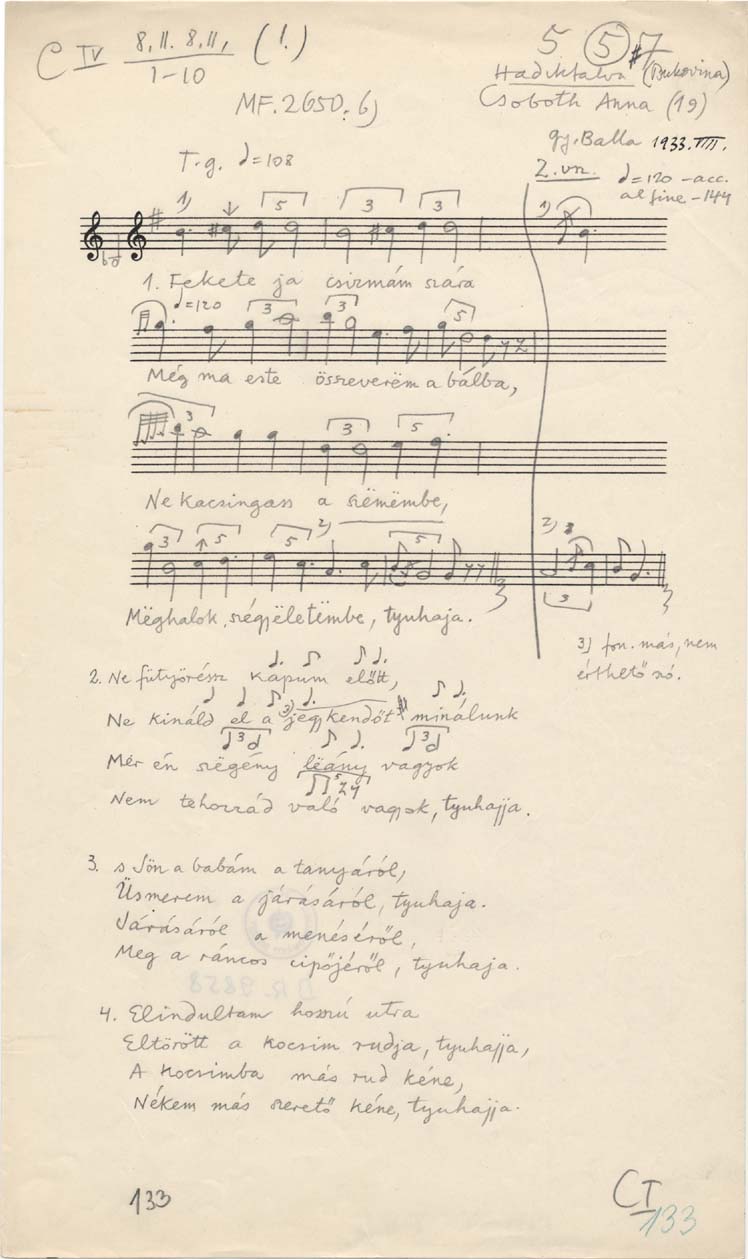 C IV 8, 11. 8, 11, (1.)
1-10
5 5 #7
MF. 2650. b)
Hadikfalva (Bukovina)
Csoboth Anna (19)
gy. Balla 1933. VIII.
T.g. ♩=108
2. vn. ♩=120 - acc.
al fine - 144
1) 5 3 3 1)
1. Fekete ja csizmám szára
♩=120 3 3 5
Még ma este összeverëm a bálba,
3 3 5
Ne kacsingass a szëmëmbe,
3 5 5 2) 5 2) 3
3
Mëghalok, szégjeletëmbe, tyuhaja.
3) fon. más, nem
érthető szó.
2. Ne fütyöréssz kapum előtt,
Ne kináld el a jegykendőt minálunk
3) 3 3
Mér én szëgény lëány vagyok
5
Nem tehozzád való vagyok, tyuhajja.
3. s Jön a babám a tanyáról,
Üsmerem a járásáról, tyuhaja.
Járásáról a menéséről,
Meg a ráncos cipőjéről, tyuhaja.
4. Elindultam hosszú utra
Eltörött a kocsim rudja, tyuhajja,
A kocsimba más rud kéne,
Nékem más szerető kéne, tyuhajja.
133
CI
133